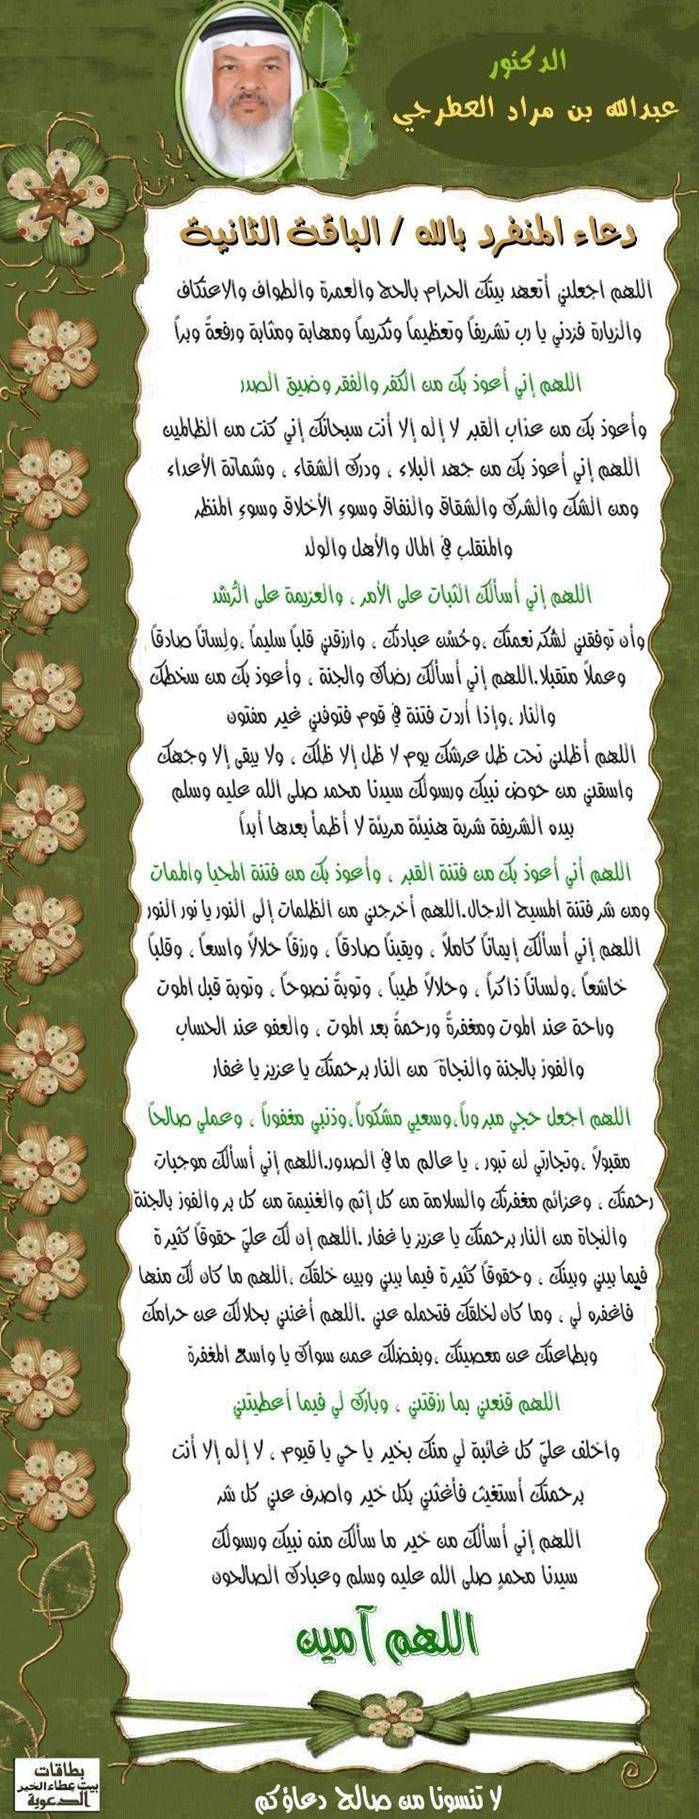 الدكتور
عبدالله بن مراد العطرجي
دعاء المنفرد بالله / الباقة الثانية
اللهم اجعلني أتعهد بيتك الحرام بالحج والعمرة والطواف والاعتكاف
والزيارة فزدني يا رب تشريفاً وتعظيماً وتكريماً ومهابة ومثابة ورفعةً وبراً
اللهم إني أعوذ بك من الكفر والفقر وضيق الصدر
وأعوذ بك من عذاب القبر لا إله إلا أنت سبحانك إني كنت من الظالمين
اللهم إني أعوذ بك من جهد البلاء ، ودرك الشقاء ، وشماتة الأعداء
ومن الشك والشرك والشقاق والنفاق وسوءِ الأخلاق وسوءِ المنظر
والمنقلب في المال والأهل والولد
اللهم إني أسألك الثبات على الأمر ، والعزيمة على الرُشد
وأن توفقني لشكر نعمتك ،وحُسْن عبادتك ، وارزقني قلباً سليماً ،ولساناً صادقاً
وعملاً متقبلا.اللهم إني أسألك رضاك والجنة ، وأعوذ بك من سخطك
والنار ،وإذا أردت فتنة في قوم فتوفني غير مفتون
اللهم أظلني تحت ظل عرشك يوم لا ظل إلا ظلك ، ولا يبقى إلا وجهك
واسقني من حوض نبيك ورسولك سيدنا محمد صلى الله عليه وسلم
بيده الشريفة شربة هنيئة مريئة لا أظمأ بعدها أبداً
اللهم أني أعوذ بك من فتنة القبر ، وأعوذ بك من فتنة المحيا والممات
ومن شر فتنة المسيح الدجال.اللهم أخرجني من الظلمات إلى النور يا نور النور
اللهم إني أسألك إيماناً كاملاً ، ويقيناً صادقاً ، ورزقاً حلالاً واسعاً ، وقلباً
خاشعاً ،ولساناً ذاكراً ، وحلالاً طيباً ، وتوبةً نصوحاً ، وتوبة قبل الموت
وراحة عند الموت ومغفرةً ورحمةً بعد الموت ، والعفو عند الحساب
والفوز بالجنة والنجاة من النار برحمتك يا عزيز يا غفار
اللهم اجعل حجي مبروراً،وسعيي مشكوراً،وذنبي مغفوراً ، وعملي صالحاً
مقبولاً ،وتجارتي لن تبور ، يا عالم ما في الصدور.اللهم إني أسألك موجبات
رحمتك ، وعزائم مغفرتك والسلامة من كل إثم والغنيمة من كل بر والفوز بالجنة
والنجاة من النار برحمتك يا عزيز يا غفار .اللهم إن لك عليّ حقوقاً كثيرة
فيما بيني وبينك ، وحقوقاً كثيرة فيما بيني وبين خلقك ،اللهم ما كان لك منها
فاغفره لي ، وما كان لخلقك فتحمله عني .اللهم أغنني بحلالك عن حرامك
وبطاعتك عن معصيتك ،وبفضلك عمن سواك يا واسع المغفرة
اللهم قنعني بما رزقتني ، وبارك لي فيما أعطيتني
واخلف عليّ كل غائبة لي منك بخير يا حي يا قيوم ، لا إله إلا أنت
برحمتك أستغيث فأغثني بكل خير واصرف عني كل شر
اللهم إني أسألك من خير ما سألك منه نبيك ورسولك
سيدنا محمدٍ صلى الله عليه وسلم وعبادك الصالحون
اللهم آمين
بطاقات
بيت عطاء الخير
الدعوية
لا تنسونا من صالح دعاؤكم